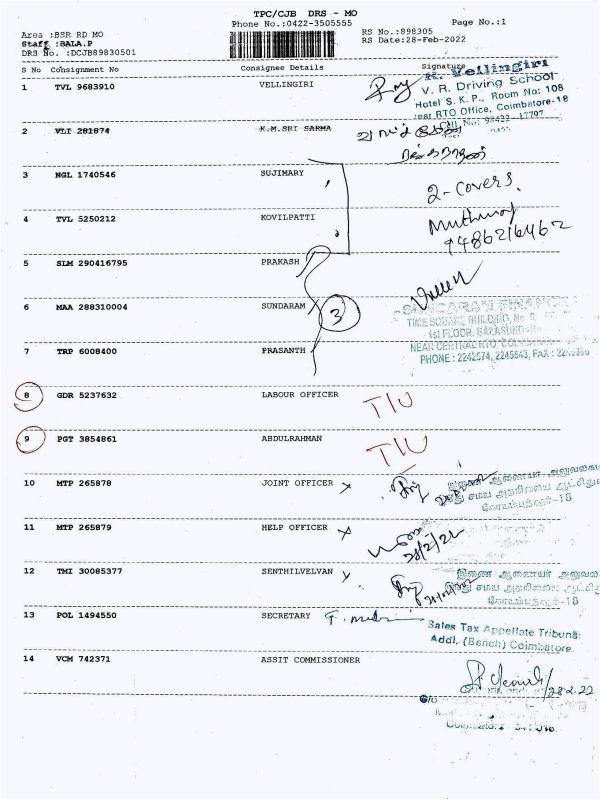 TPC/CJB DRS - MO
Phone No.:0422-3505555
Page No.:1
Area :BSR RD MO
Staff :BALA.P
DRS No. :DCJB89830501
RS No.:898305
RS Date:28-Feb-2022
S No Consignment No Consignee Details Signature
1 TVL 9683910 VELLINGIRI
K. Vellingiri
V. R. Driving School
Hotel S. K. P., Room No: 108
near RTO Office, Coimbatore-18
2 VLI 281874 K.M.SRI SARMA
3 NGL 1740546 SUJIMARY
2-covers.
4 TVL 5250212 KOVILPATTI
9486216462
5 SLM 290416795 PRAKASH
6 MAA 288310004 SUNDARAM
3
TIME SQUARE BUILDING, No
1st FLOOR,
PHONE : 2242574, 2245643, FAX :
7 TRP 6008400 PRASANTH
8 GDR 5237632 LABOUR OFFICER T/U
9 PGT 3854861 ABDULRAHMAN T/U
10 MTP 265878 JOINT OFFICER
இணை ஆணையர் அலுவலகம்
கோயம்புத்தூர்-18
11 MTP 265879 HELP OFFICER
28/2/22
12 TMI 30085377 SENTHILVELVAN
இணை ஆணையர்
கோயம்புத்தூர்-18
13 POL 1494550 SECRETARY
Sales Tax Appellate Tribunal
Addl. (Bench) Coimbatore
14 VCM 742371 ASSIT COMMISSIONER
28.2.22